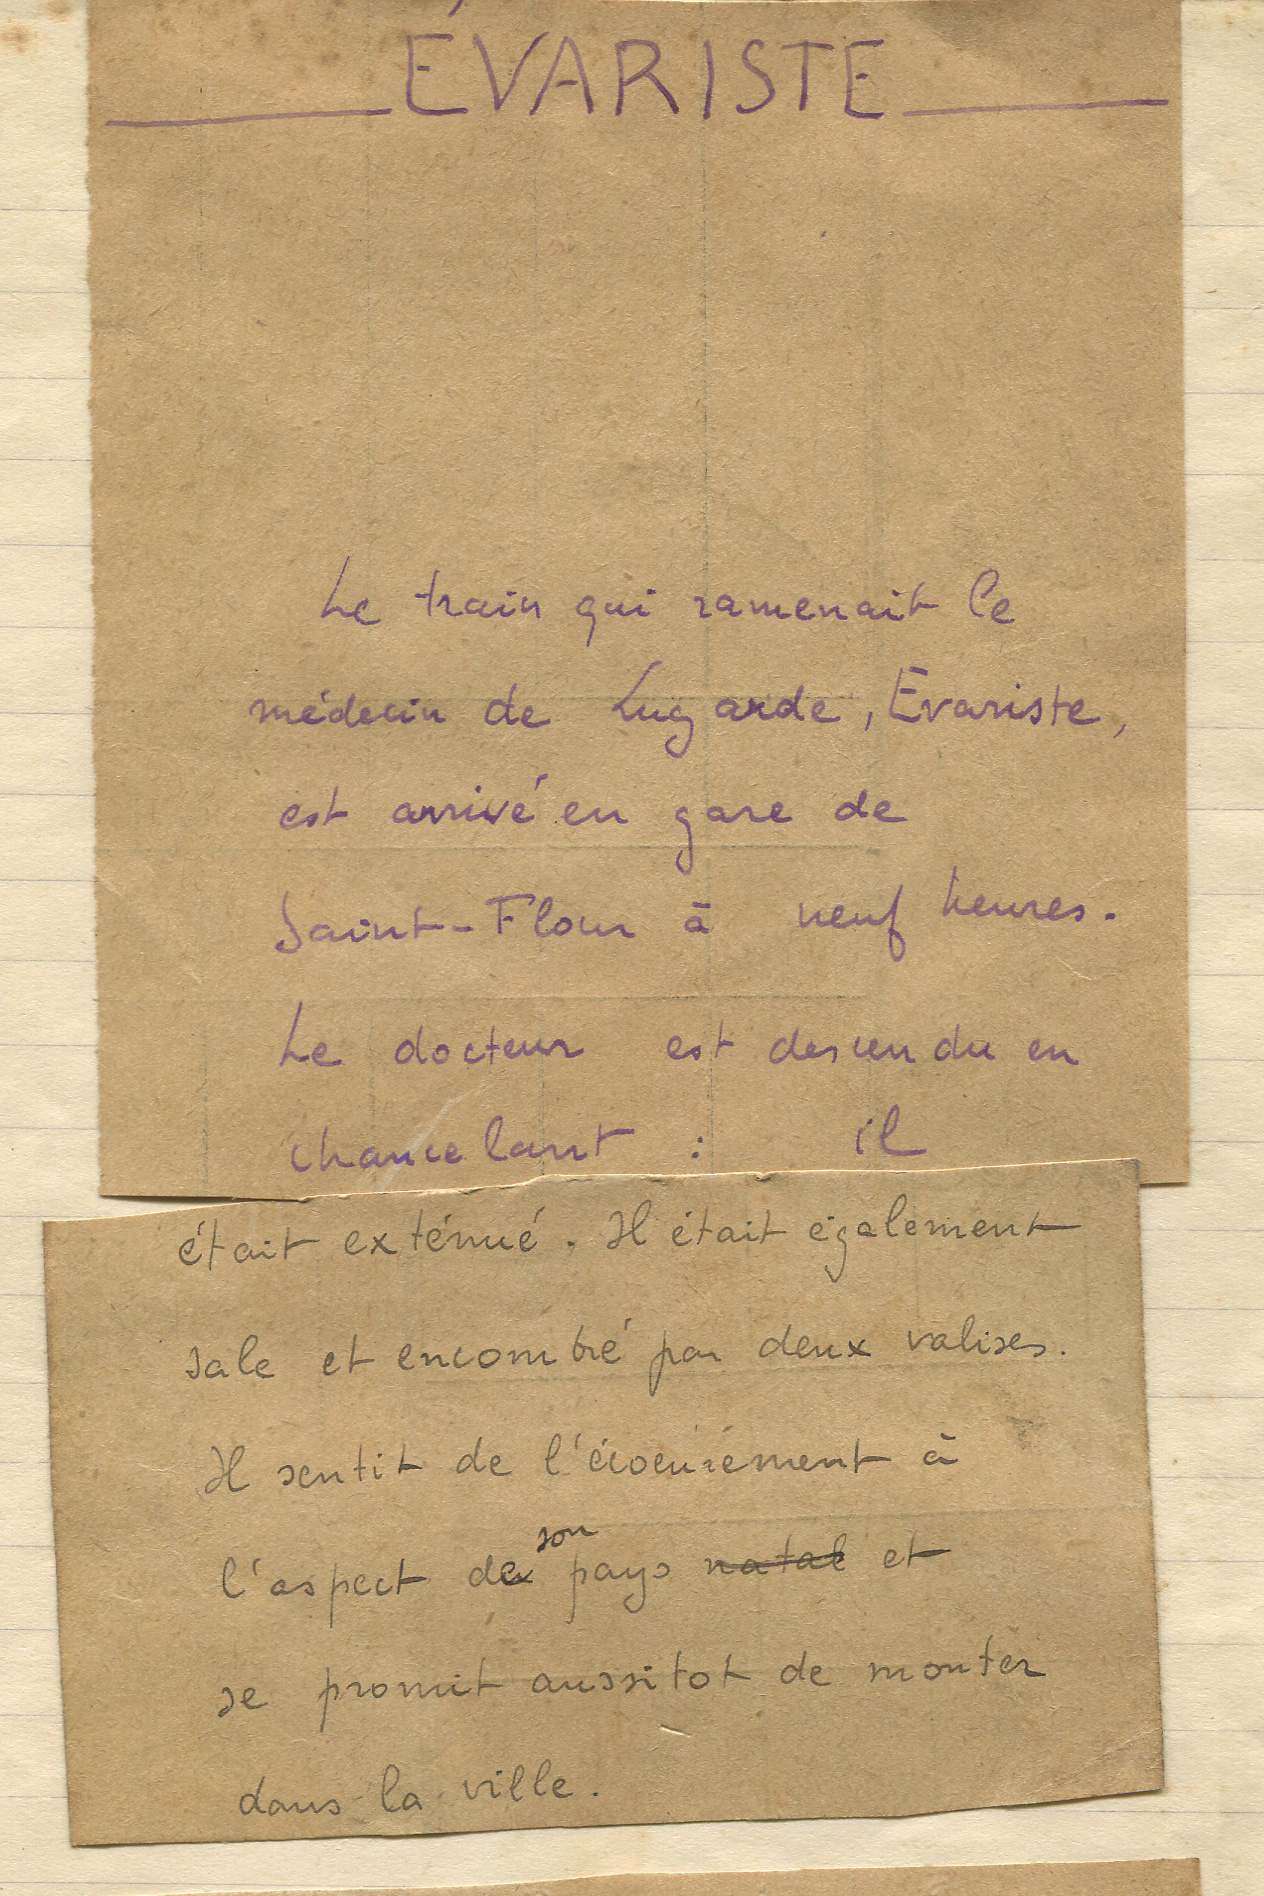 ÉVARISTE
Le train qui ramenait le
médecin de Lugarde, Evariste,
est arrivé en gare de
Saint-Flour à neuf heures.
Le docteur est descendu en
chancelant : il
était exténué. Il était également
sale et encombré par deux valises.
Il sentit de l'écoeurement à
l'aspect de son pays natal et
se promit aussitot de monter
dans la ville.